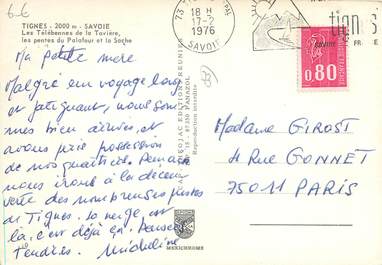 6-6
TIGNES - 2000 m - SAVOIE
Les Télébennes de la Tovière,
les pentes du Palafour et la Sache
Ma petite mère
Malgré un voyage long
et fatiguant, nous som
mes bien arrivés et
avons pris possession
de nos quartiers. Demain
nous irons à la décou
verte des nombreuses pistes
de Tignes. La neige est
là, c'est déjà ça. Pensées
Tendres. Micheline
73 PAL
18 H
17-2
1976
SAVOIE
tignes
0,80
EDITION REUNIES
87350 PANAZOL
Reproduction interdite
MEXICHROME
Madame GIROST
4 Rue GONNET
75011 PARIS